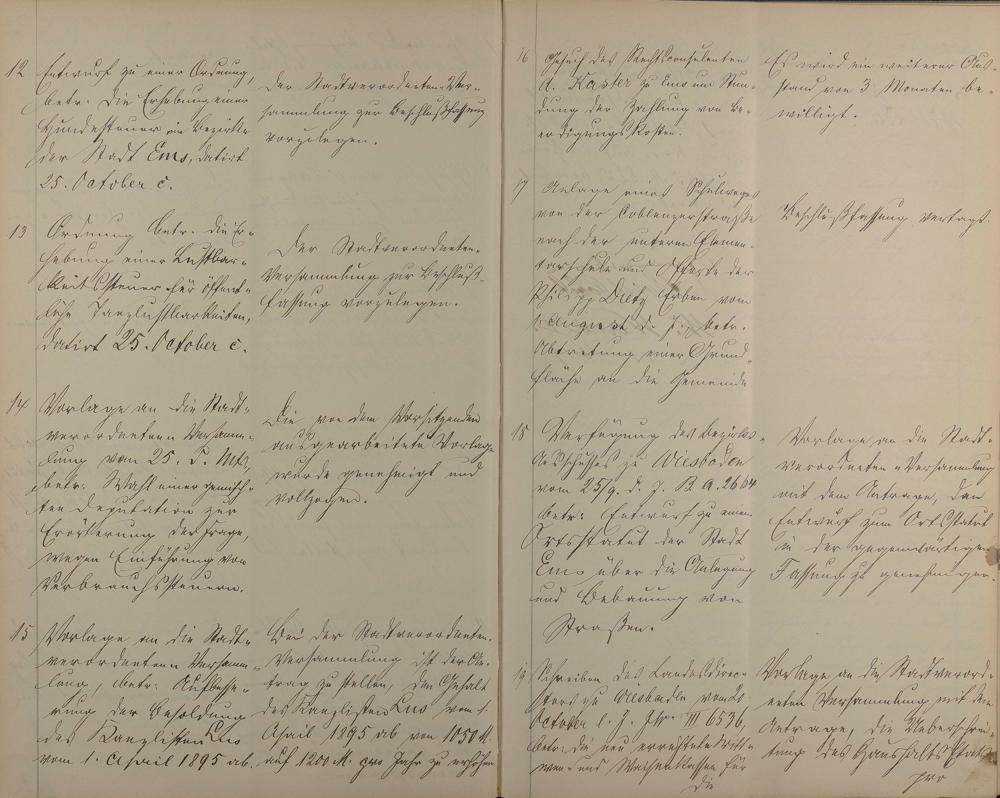 12 Entwurf zu einer Ordnung,
betr. die Erhebung einer
Hundesteuer im Bezirke
der Stadt Ems, datirt
25. October c.
Der Stadtverordneten-Ver-
sammlung zur Beschlußfassung
vorzulegen.
13 Ordnung betr. die Er-
hebung einer Lustbar-
keitssteuer für öffent-
liche Tanzlustbarkeiten,
datirt 25. October c.
Der Stadtverordneten-
Versammlung zur Beschluß-
fassung vorzulegen.
14 Vorlage an die Stadt-
verordneten-Versamm-
lung vom 25. d. Mts,
betr. Wahl einer gemisch-
ten Deputation zur
Erörterung der Frage
wegen Einführung von
Verbrauchssteuern.
Die von dem Vorsitzenden
ausgearbeitete Vorlage
wurde genehmigt und
vollzogen.
15 Vorlage an die Stadt-
verordneten-Versamm-
lung, betr. Aufbesse-
rung der Besoldung
des Kanzlisten
vom 1. April 1895 ab.
Bei der Stadtverordneten-
Versammlung ist der An-
trag zu stellen, den Gehalt
des Kanzlisten vom 1.
April 1895 ab von 1050 M.
auf 1200 M. pro Jahr zu erhöhen
16 Gesuch des Rechtsconsulenten
A. Kaster zu Ems um Stun-
dung der Zahlung von Be-
erdigungskosten.
Es wird ein weiterer Aus-
stand von 3 Monaten be-
willigt.
17 Anlage eines Schulweges
von der Coblenzerstraße
nach der unteren Elemen-
tarschule und Offerte der
Philipp Dietz Erben vom
1. August d. J., betr.
Abtretung einer Grund-
fläche an die Gemeinde
Beschlußfassung vertagt.
18 Verfügung des Bezirks-
Ausschusses zu Wiesbaden
vom 25/9. d. J. B. A. 2604
betr. Entwurf zu einem
Ortsstatut der Stadt
Ems über die Anlegung
und Bebauung von
Straßen.
Vorlage an die Stadt-
verordneten-Versammlung
mit dem Antrage, den
Entwurf zum Ortsstatut
in der gegenwärtigen
Fassung zu genehmigen.
19 Schreiben des Landesdirec-
tors zu Wiesbaden vom
October l. J. Nr. III 6536,
betr. die neu errichtete Witt-
wen- und Waisenkassen für
die
Vorlage an die Stadtverord-
neten Versammlung mit dem
Antrage, die Ueberschrei-
tung des Haushalts Etats
pro